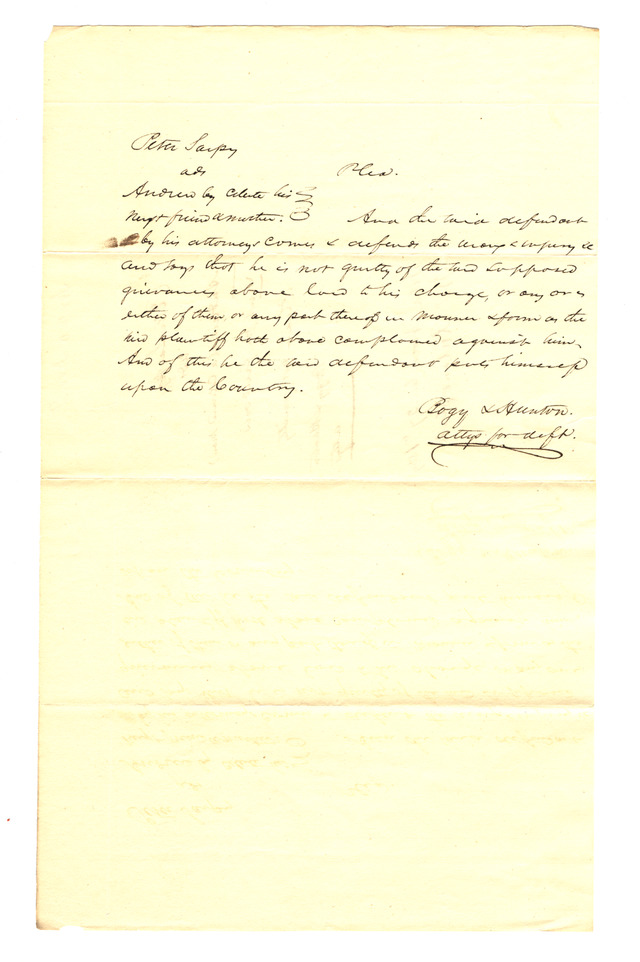 Peter Sarpy
ads Plea.
Andrew by Celeste his
next friend & mother. And the said defendant
by his attorneys comes & defends the wrong & injury &c
and says that he is not guilty of the said supposed
grievances above laid to his charge, or any or
either of them, or any part thereof in manner & form as the
said plaintiff hath above complained against him.
And of this he the said defendant puts himself
upon the Country.
Bogy & Hunton.
attys for deft.